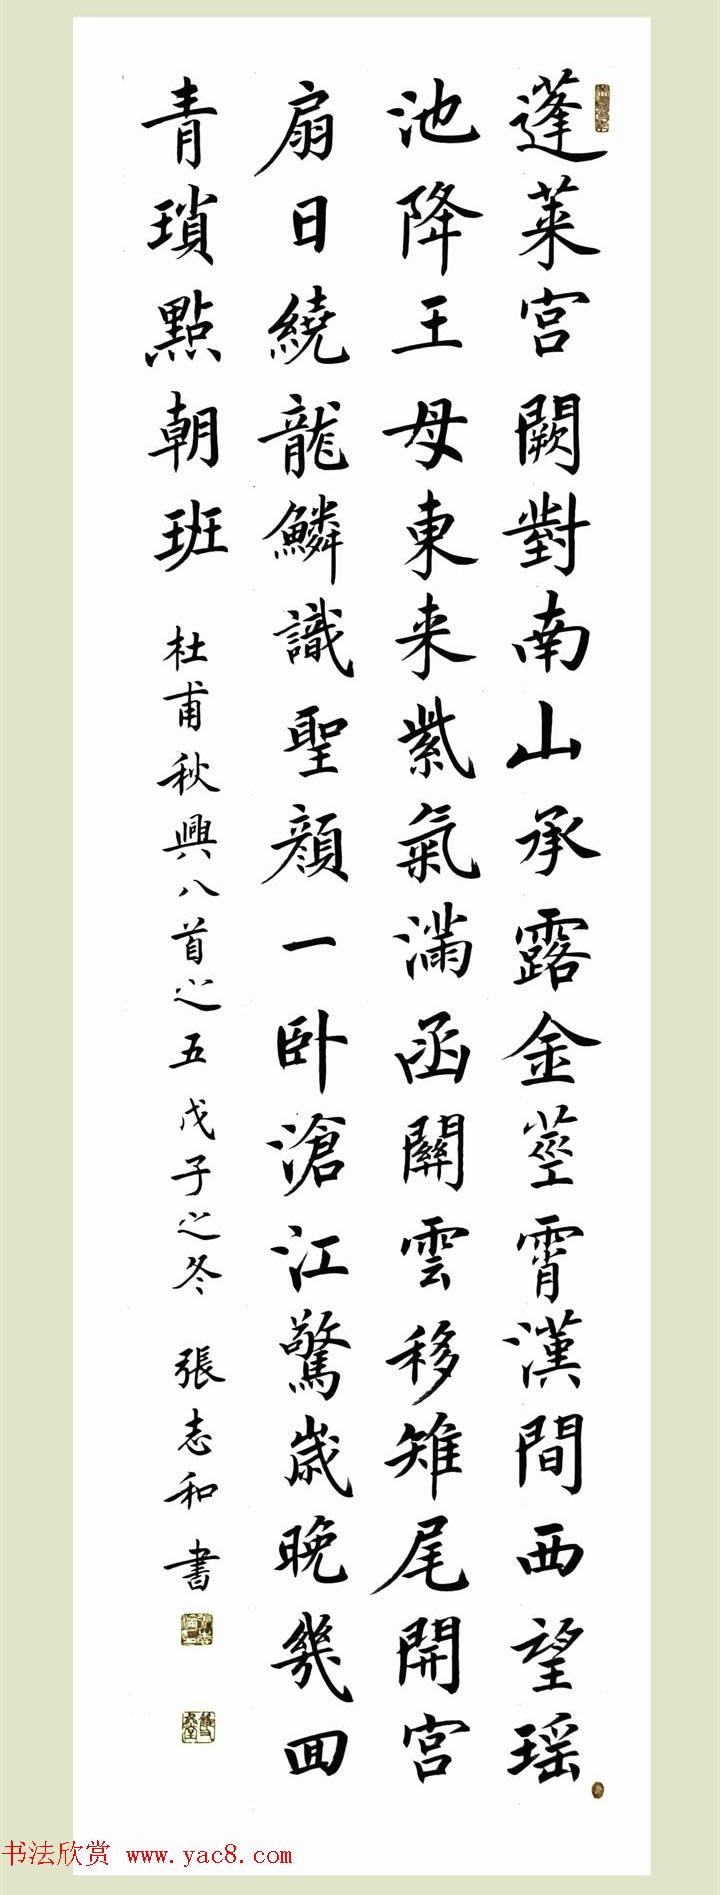 蓬萊宮闕對南山承露金莖霄漢間西望瑶
池降王母東来紫氣滿函關雲移雉尾開宮
扇日繞龍鱗識聖顔一卧滄江驚歲晚幾回
青瑣點朝班
杜甫秋興八首之五戊子之冬 張志和書
书法欣赏 www.yac8.com